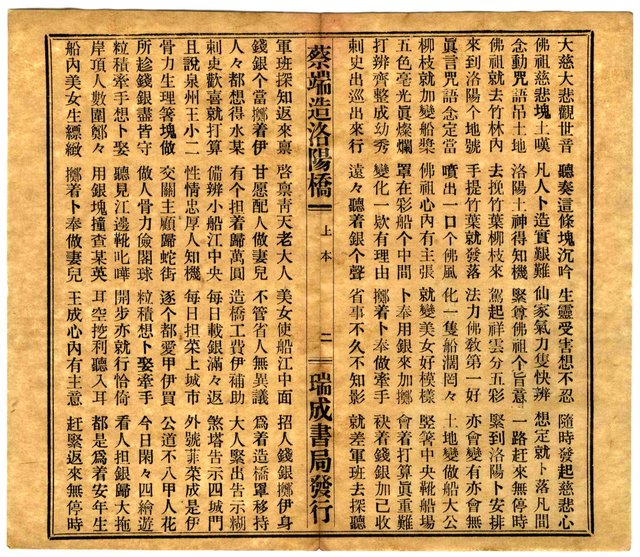 大慈大悲觀世音　聽奏這條塊沉吟　生靈受害想不忍　隨時發起慈悲心
佛祖慈悲塊土嘆　凡人卜造實艱難　仙家氣力隻快辨　想定就卜落凡間
念動咒語吊土地　洛陽土神得知機　緊尊佛祖个旨意　一路赶來無停時
佛祖就去竹林內　去挽竹葉柳枝來　駕起祥雲分五彩　緊到洛陽卜安排
來到洛陽个地號　手提竹葉就發落　法力佛敎第一好　亦會變有亦會無
眞言咒語念定當　噴出一口个佛風　化一隻船濶罔々　土地變做船大公
柳枝就加變船槳　佛祖心內有主張　就變美女好模樣　竪箸中央靴船場
五色毫光眞燦爛　罩在彩船个中間　卜奉用銀來加擲　會着打算眞重難
打辨齊整成幼秀　變化一欵有理由　擲着卜奉做牽手　袂着錢銀加己收
刺史出巡出來行　遠々聽着銀个聲　省事不久不知影　就差軍班去探聽
蔡端造洛陽橋　上本　二　瑞成書局發行
軍班探知返來禀　啓禀靑天老大人　美女使船江中面　招人錢銀擲伊身
錢銀个當擲着伊　甘愿配人做妻兒　不管省人無異議　爲着造橋罩移持
人々都想得水某　有个担着歸萬圓　造橋工費伊補助　大人緊出告示糊
刺史歡喜就打算　備辨小船江中央　每日載銀滿々返　煞塔告示四城門
且說泉州王小二　性情忠厚人知機　每日担菜上城市　外號菲菜成是伊
骨力生理箸塊做　交關主顧歸蛇街　逐个都愛甲伊買　公道不八甲人花
所趁錢銀盡皆守　做人骨力儉閣球　粒積想卜娶牽手　今日閑々四繪遊
粒積牽手想卜娶　聽見江邊靴叱嘩　開步亦就行恰倚　看人担銀歸大拖
岸項人數圍鄭々　用銀塊撞查某英　耳空挖利聽入耳　都是爲着安年生
船內美女生縹緻　擲着卜奉做妻兒　王成心內有主意　赶緊返來無停時